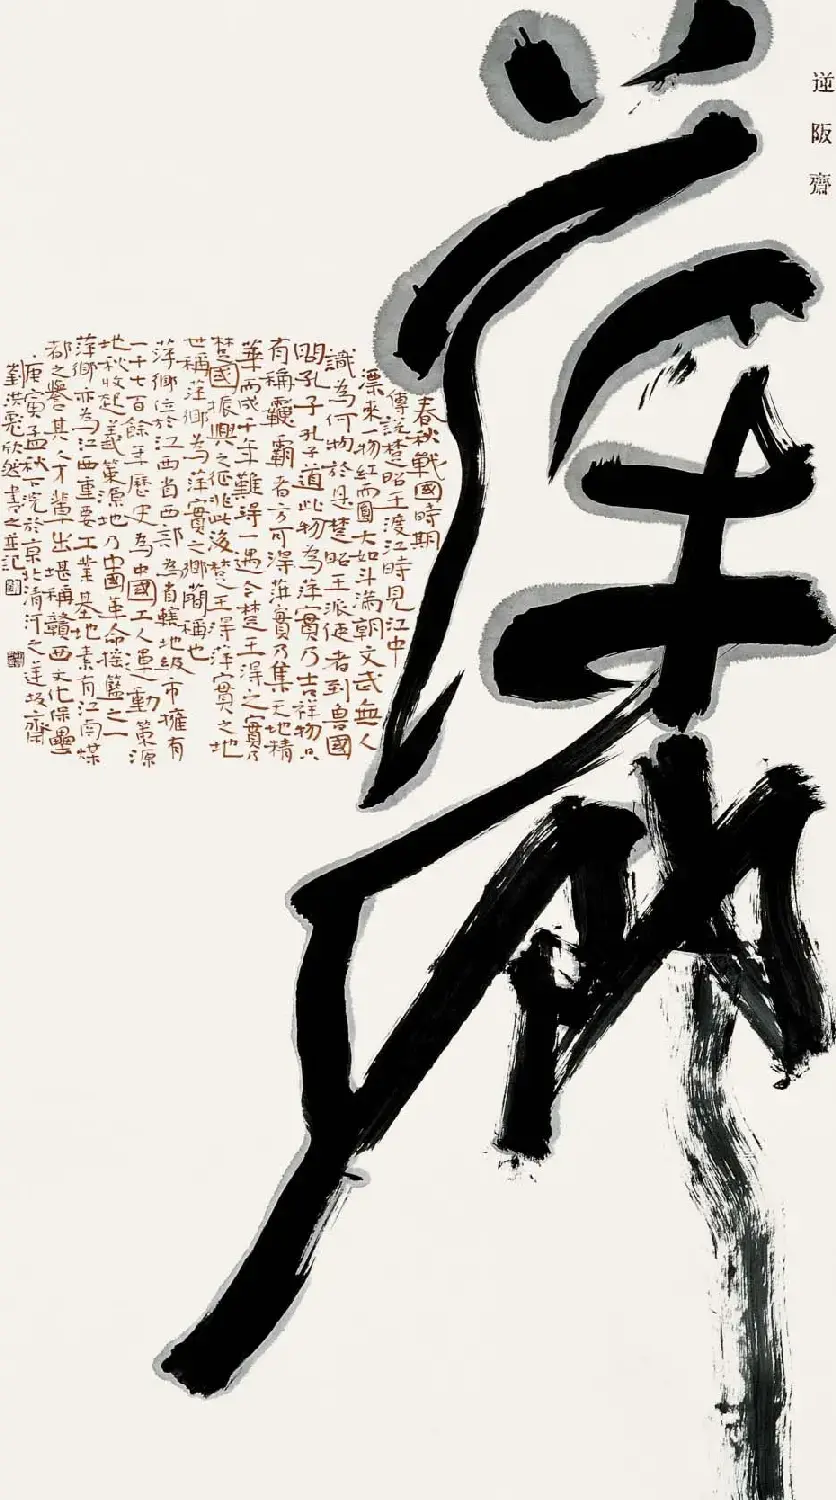 逆阪齋
春秋戰國時期
傳説楚昭王渡江時見江中
漂來一物紅而圓大如斗滿朝文武無人
識為何物於是楚昭王派使者到魯國
問孔子孔子道此物為萍實乃吉祥物只
有稱霸者方可得萍實乃集天地精
華而成千年難得一遇今楚王得之實乃
楚國振興之征兆此後楚王得萍實之地
世稱萍鄉為萍實之鄉簡稱也
萍鄉位於江西省西部為省轄地級市擁有
一千七百餘年歷史為中國工人運動策源
地秋收起義策源地乃中國革命搖籃之一
萍鄉亦為江西重要工業基地素有江南煤
都之譽其人才輩出堪稱贛西文化保壘
庚寅孟秋下浣於京北清河之逆坂齋
劉洪彪欣然書之並記